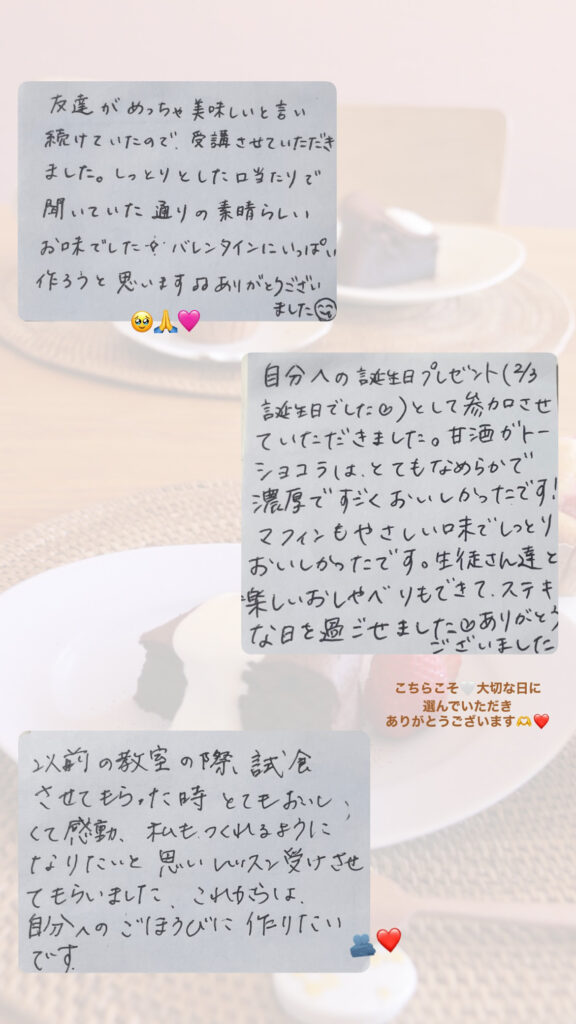 友達がめっちゃ美味しいと言い
続けていたので、受講させていただき
ました。しっとりとした口当たりで
聞いていた通りの素晴らしい
お味でした✧ バレンタインにいっぱい
作ろうと思います♫ありがとうござい
ました😋
🥹🙏🩷
自分への誕生日プレゼント(2/3
誕生日でした♡)として参加させ
ていただきました。甘酒ガトー
ショコラは、とてもなめらかで
濃厚ですごくおいしかったです!
マフィンもやさしい味でしっとり
おいしかったです。生徒さん達と
楽しいおしゃべりもできて、ステキ
な日を過ごせました♡ありがとう
ございました
こちらこそ🤍大切な日に
選んでいただき
ありがとうございます🫶❤️
以前の教室の際、試食
させてもらった時とてもおいし
くて感動、私もつくれるように
なりたいと思いレッスン受けさせ
てもらいました、これからは、
自分へのごほうびに作りたい
です
🫂❤️